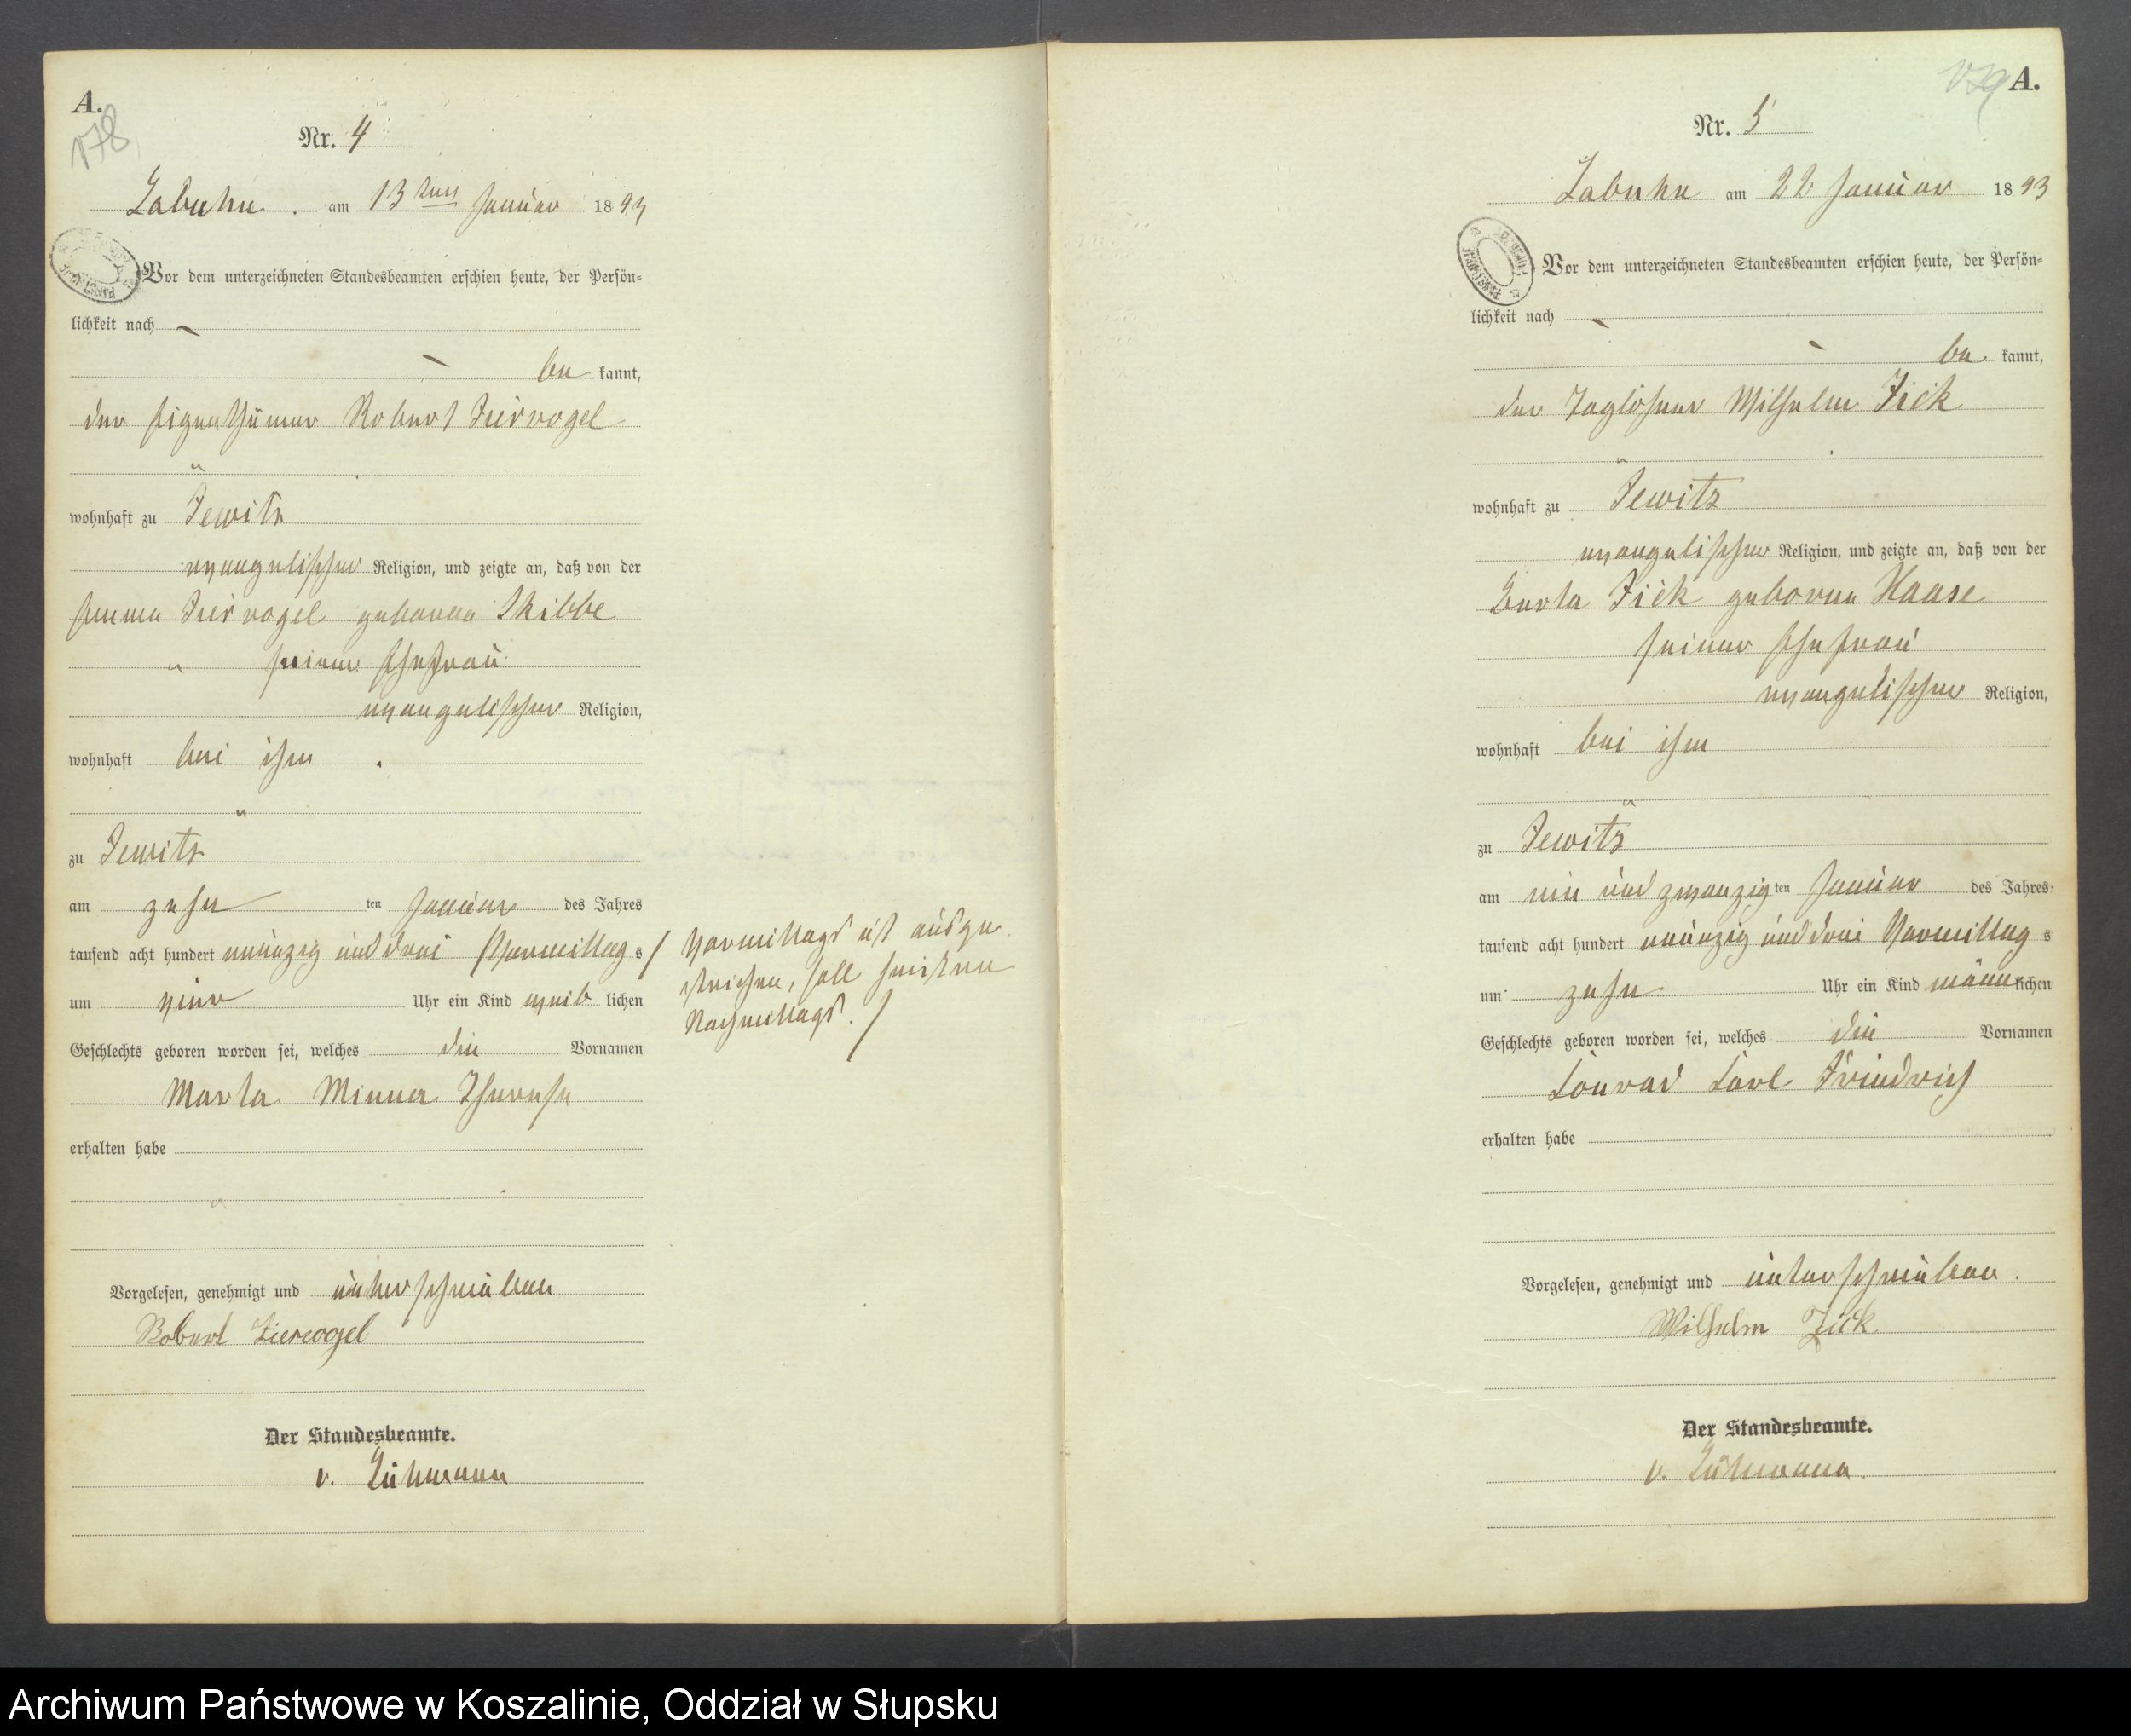 A.
178
Nr. 4
Labuhn. am 13ten Januar 1893
Vor dem unterzeichneten Standesbeamten erschien heute, der Persön=
lichkeit nach
be kannt,
der Eigenthümer Robert Ziervogel
wohnhaft zu Jewitz
evangelischer Religion, und zeigte an, daß von der
Emma Ziervogel geborene Skibbe
seiner Ehefrau
evangelischer Religion,
wohnhaft bei ihm
zu Jewitz
am zehn ten Januar des Jahres
tausend acht hundert neunzig und drei /Vormittag s/
um vier Uhr ein Kind weib lichen
Geschlechts geboren worden sei, welches die Vornamen
Marta Minna Therese
erhalten habe
Vorgelesen, genehmigt und unterschrieben
Robert Ziervogel
Der Standesbeamte.
v.
Vormittags ist ausge
strichen, soll heißen
Nachmittags. /
179 A.
Nr. 5
Labuhn am 22 Januar 1893
Vor dem unterzeichneten Standesbeamten erschien heute, der Persön=
lichkeit nach
be kannt,
der Taglöhner Wilhelm Zick
wohnhaft zu Jewitz
evangelischer Religion, und zeigte an, daß von der
Berta Zick geborene Haase
seiner Ehefrau
evangelischer Religion,
wohnhaft bei ihm
zu Jewitz
am ein und zwanzig ten Januar des Jahres
tausend acht hundert neunzig und drei Vormittag s
um zehn Uhr ein Kind männlichen
Geschlechts geboren worden sei, welches die Vornamen
Conrad Carl Friedrich
erhalten habe
Vorgelesen, genehmigt und unterschrieben.
Wilhelm Zick
Der Standesbeamte.
v.
Archiwum Państwowe w Koszalinie, Oddział w Słupsku